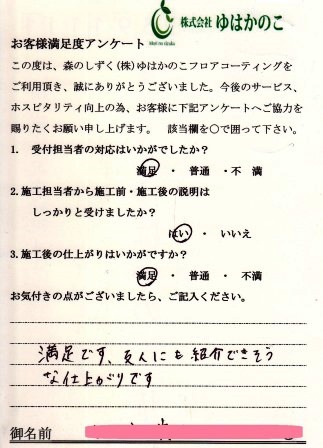 株式会社 ゆはかのこ
お客様満足度アンケート
この度は、森のしずく(株)ゆはかのこフロアコーティングを
ご利用頂き、誠にありがとうございました。今後のサービス、
ホスピタリティ向上の為、お客様に下記アンケートへご協力を
賜りたくお願い申し上げます。 該当欄を〇で囲って下さい。
1. 受付担当者の対応はいかがでしたか?
満足 ・ 普通 ・不 満
2.施工担当者から施工前・施工後の説明は
しっかりと受けましたか?
はい ・ いいえ
3.施工後の仕上がりはいかがですか?
満足 ・ 普通 ・ 不満
お気付きの点がございましたら、ご記入ください。
満足です、友人にも紹介できそう
な仕上がりです
御名前